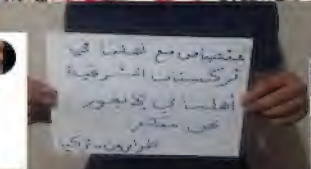 متضامن مع أهلنا في
تركستان الشرقية
أهلنا في الإيغور
نحن معكم